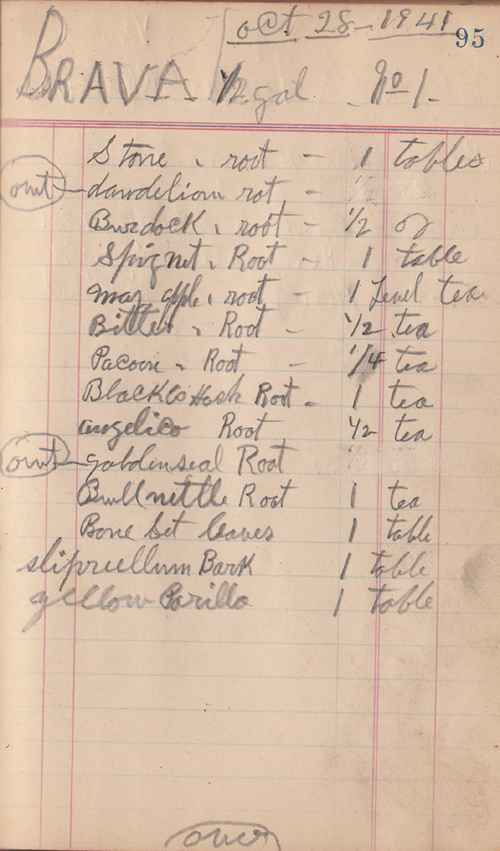 Oct 28 - 1941 95
BRAVA 1/2 gal No 1 -
Stone . root - 1 tables
out dandeliom rot -
Burdock . root - 1/2 oz
Spignet . Root - 1 table
may apple . root - 1 Level tea
Bitter . Root - 1/2 tea
Pacoon . Root - 1/4 tea
Black Co Hosh Root - 1 tea
angelico Root 1/2 tea
out goldenseal Root
Bull nettle Root 1 tea
Bone set leaves 1 table
sliprellum Bark 1 table
yellow Parilla 1 table
over